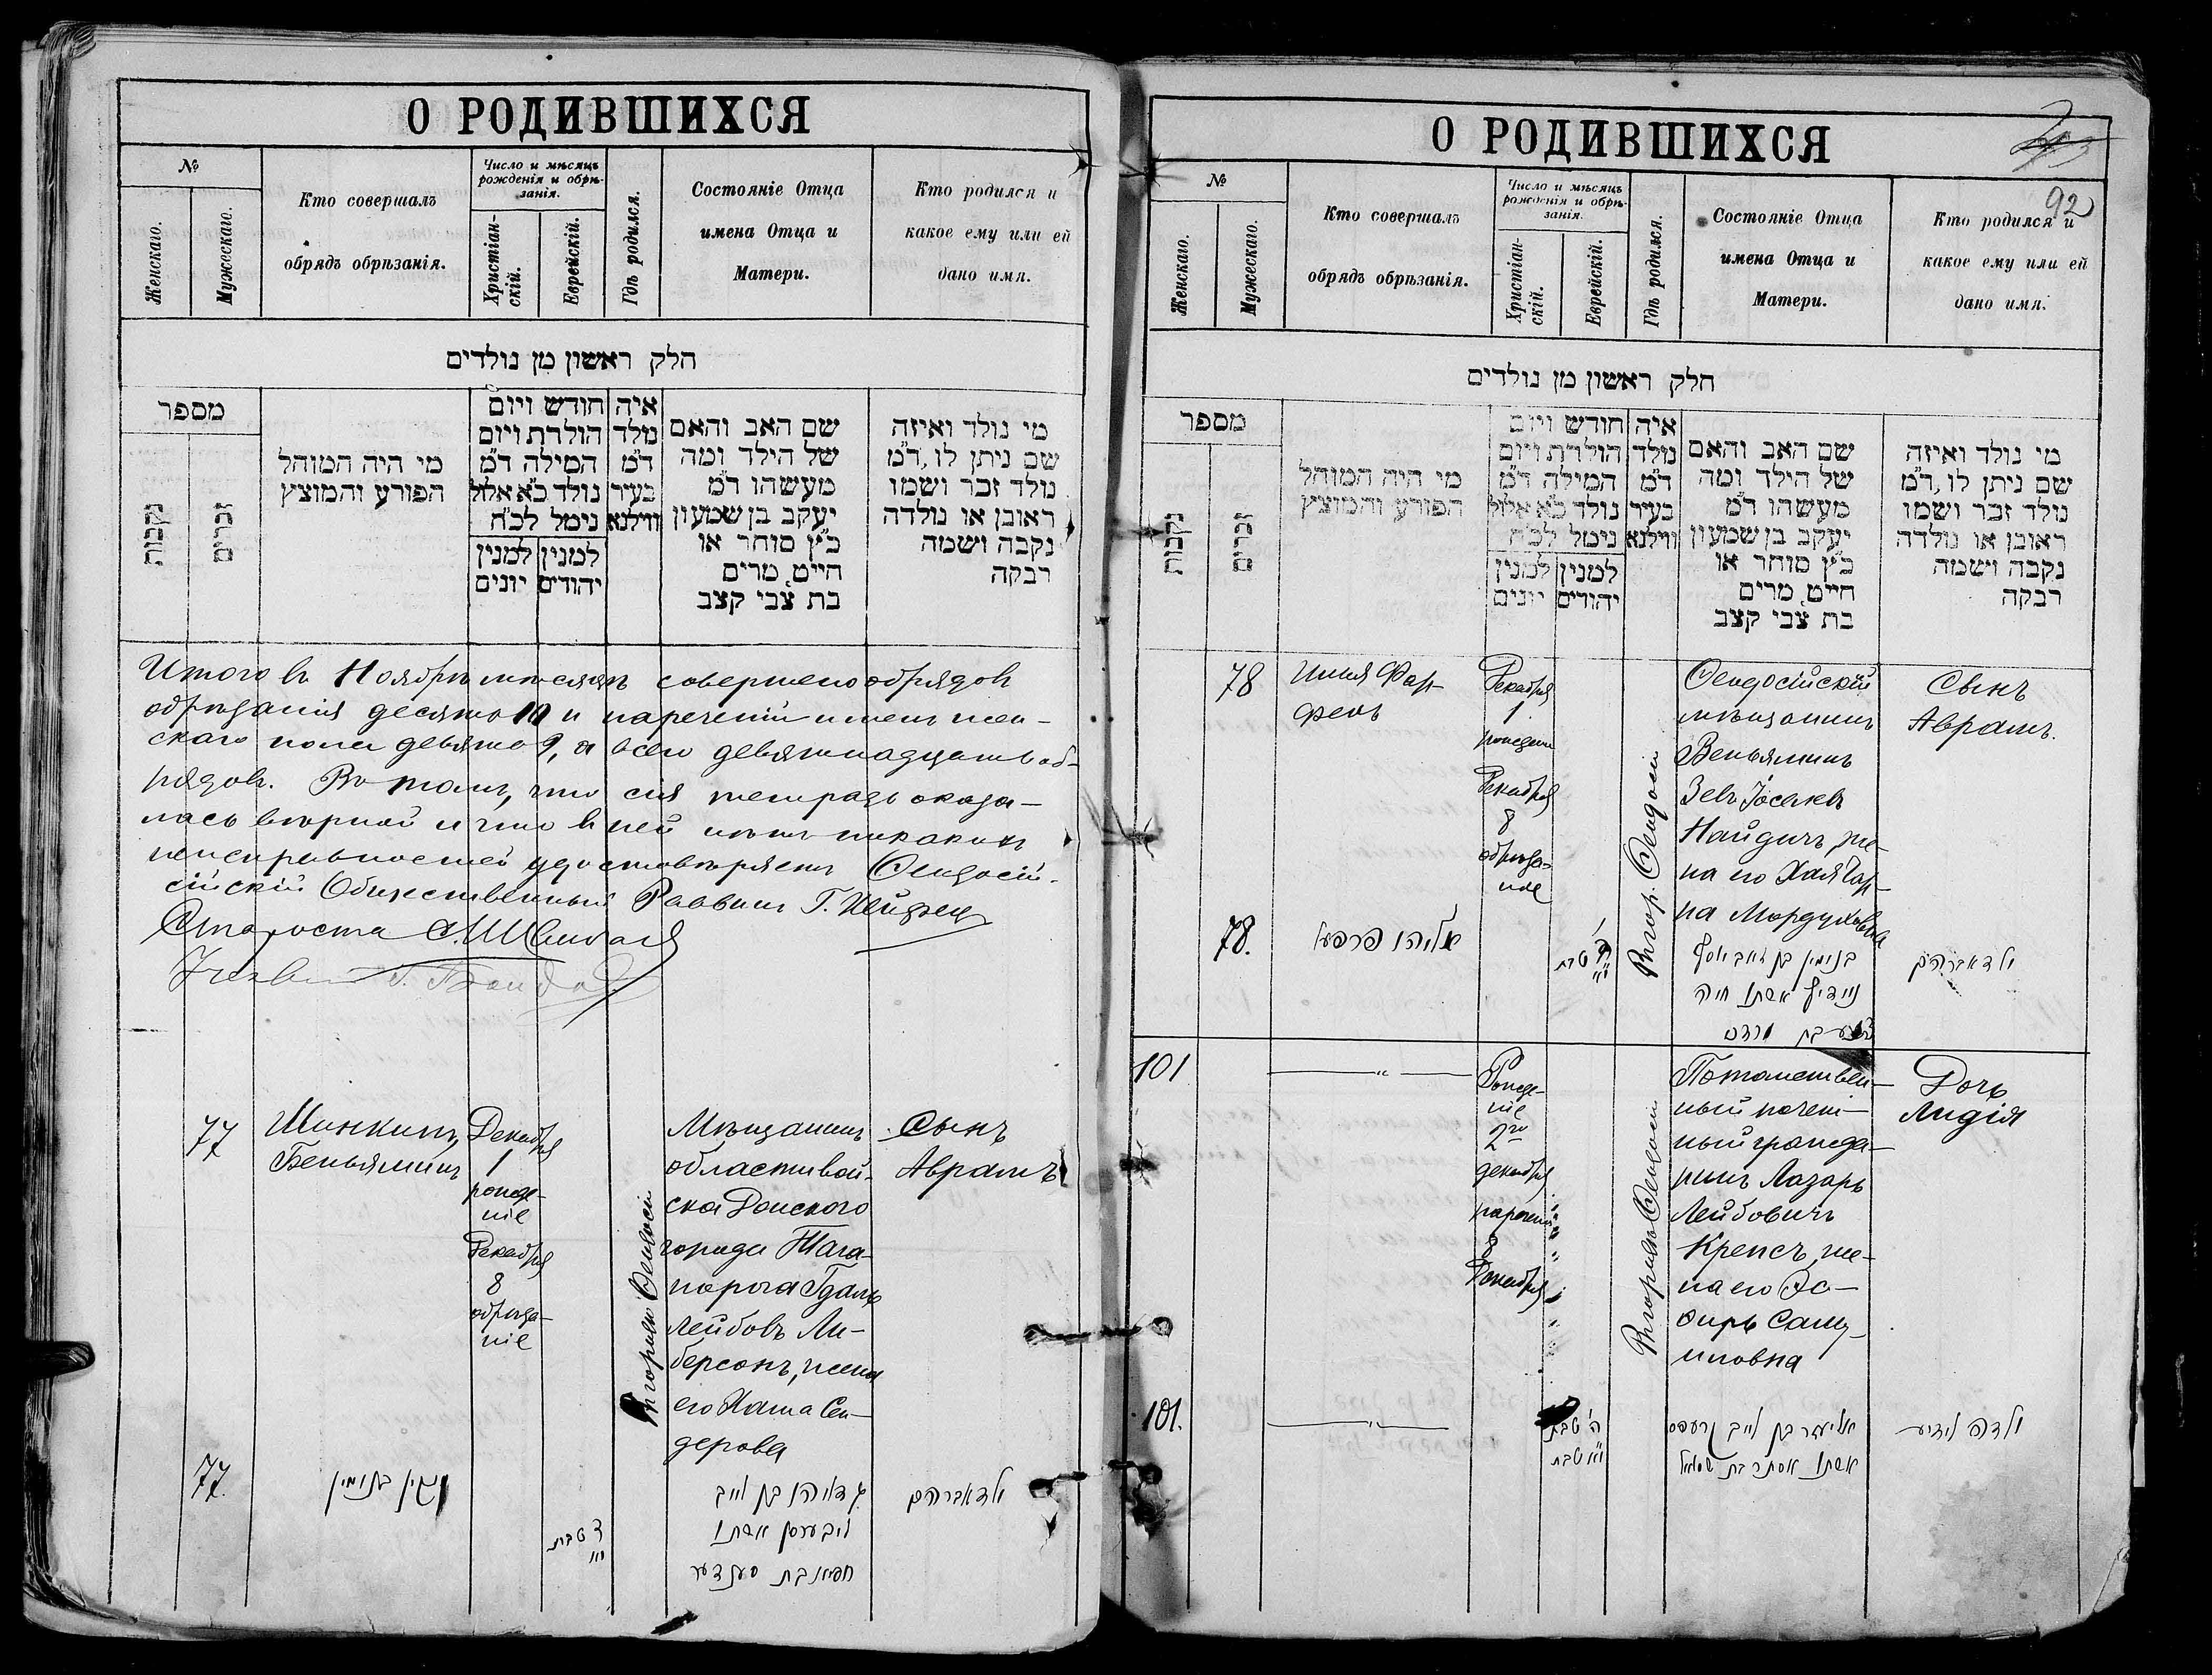 О РОДИВШИХСЯ
№
Женскаго.
Мужескаго.
Кто совершалъ
обрядъ обрѣзанія.
Число и мѣсяцъ
рожденія и обрѣ-
занія.
Христіан-
скій.
Еврейскій.
Гдѣ родился.
Состояніе Отца
имена Отца и
Матери.
Кто родился и
какое ему или ей
дано имя.
חלק ראשון מן נולדים
מספר
נקבות
זכרים
מי היה המוהל
הפורע והמוצץ
חודש ויום
הולדת ויום
המילה ד״מ
נולד כ״א אלול
נימל לכ״ח
למנין
יהודים
למנין
יונים
איה
נולד
ד״מ
בעיר
ווילנא
שם האב והאם
של הילד ומה
מעשהו ד״מ
יעקב בן שמעון
כ״ץ סוחר או
חייט, מרים
בת צבי קצב
מי נולד ואיזה
שם ניתן לו, ד״מ
נולד זכר ושמו
ראובן או נולדה
נקבה ושמה
רבקה
Итого въ Ноябрѣ мѣсяцѣ совершено обрядовъ
обрѣзанія десять 10 и нареченій именъ жен-
скаго пола девять 9, а всего девятнадцать об-
рядовъ. Въ томъ, что сія тетрадь оказа-
лась вѣрной и что въ ней нѣтъ никакихъ
неисправностей удостовѣряетъ Ѳеодосій-
сійскій Общественный Раввинъ Г.
Староста
77
Шинкинъ,
Беньяминъ
Декабря
1
рожде-
ніе
Декабря
8
обрѣза-
ніе
Въ городѣ Ѳеодосіи
Мѣщанинъ
области вой-
ска Донского
города Тага-
нрога Гдаль
Лейбовъ Ли-
берсонъ, жена
его Хана Сен-
дерова
Сынъ
Аврамъ
77.
בנימין
ד׳ טבת
י״א
גדליהו בן לייב
ליבערסן אשתו
בת סענדער
ילד אברהם
О РОДИВШИХСЯ
92
№
Женскаго.
Мужескаго.
Кто совершалъ
обрядъ обрѣзанія.
Число и мѣсяцъ
рожденія и обрѣ-
занія.
Христіан-
скій.
Еврейскій.
Гдѣ родился.
Состояніе Отца
имена Отца и
Матери.
Кто родился и
какое ему или ей
дано имя.
חלק ראשון מן נולדים
מספר
נקבות
זכרים
מי היה המוהל
הפורע והמוצץ
חודש ויום
הולדת ויום
המילה ד״מ
נולד כ״א אלול
נימל לכ״ח
למנין
יהודים
למנין
יונים
איה
נולד
ד״מ
בעיר
ווילנא
שם האב והאם
של הילד ומה
מעשהו ד״מ
יעקב בן שמעון
כ״ץ סוחר או
חייט, מרים
בת צבי קצב
מי נולד ואיזה
שם ניתן לו, ד״מ
נולד זכר ושמו
ראובן או נולדה
נקבה ושמה
רבקה
78
Илья Фар-
фель
Декабря
1
рожденіе
Декабря
8
обрѣза-
ніе
Въ гор. Ѳеодосіи
Ѳеодосійскій
мѣщанинъ
Веньяминъ
Зевъ Іосевъ
Найдичъ, же-
на его Хая Чар-
на Мордуховна
Сынъ
Аврамъ.
78.
אליהו פרפעל
ד׳ טבת
י״א
בנימין בן זאב יוסף
ניידיץ אשתו חיה
בת
ילד אברהם
101
— " —
Рожде-
ніе
2го
декабря
нареченіе
8
Декабря
Въ городѣ Ѳеодосіи
Потомствен-
ный почет-
ный гражда-
нинъ Лазарь
Лейбовичъ
Крепсъ, же-
на его Эс-
ѳирь Саму-
иловна
Дочь
Лидія
101.
— " —
ה׳ טבת
י״א טבת
אליעזר בן לייב קרעפס
אשתו אסתר בת שמואל
ילדה לידיע